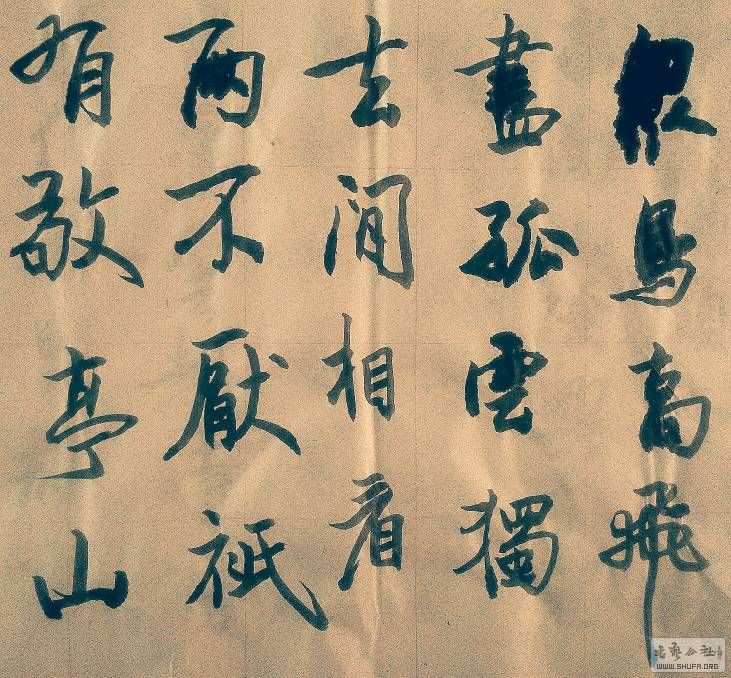 眾鳥高飛
盡孤雲獨
去閒相看
兩不厭祇
有敬亭山
书艺公社
WWW.SHUFA.ORG